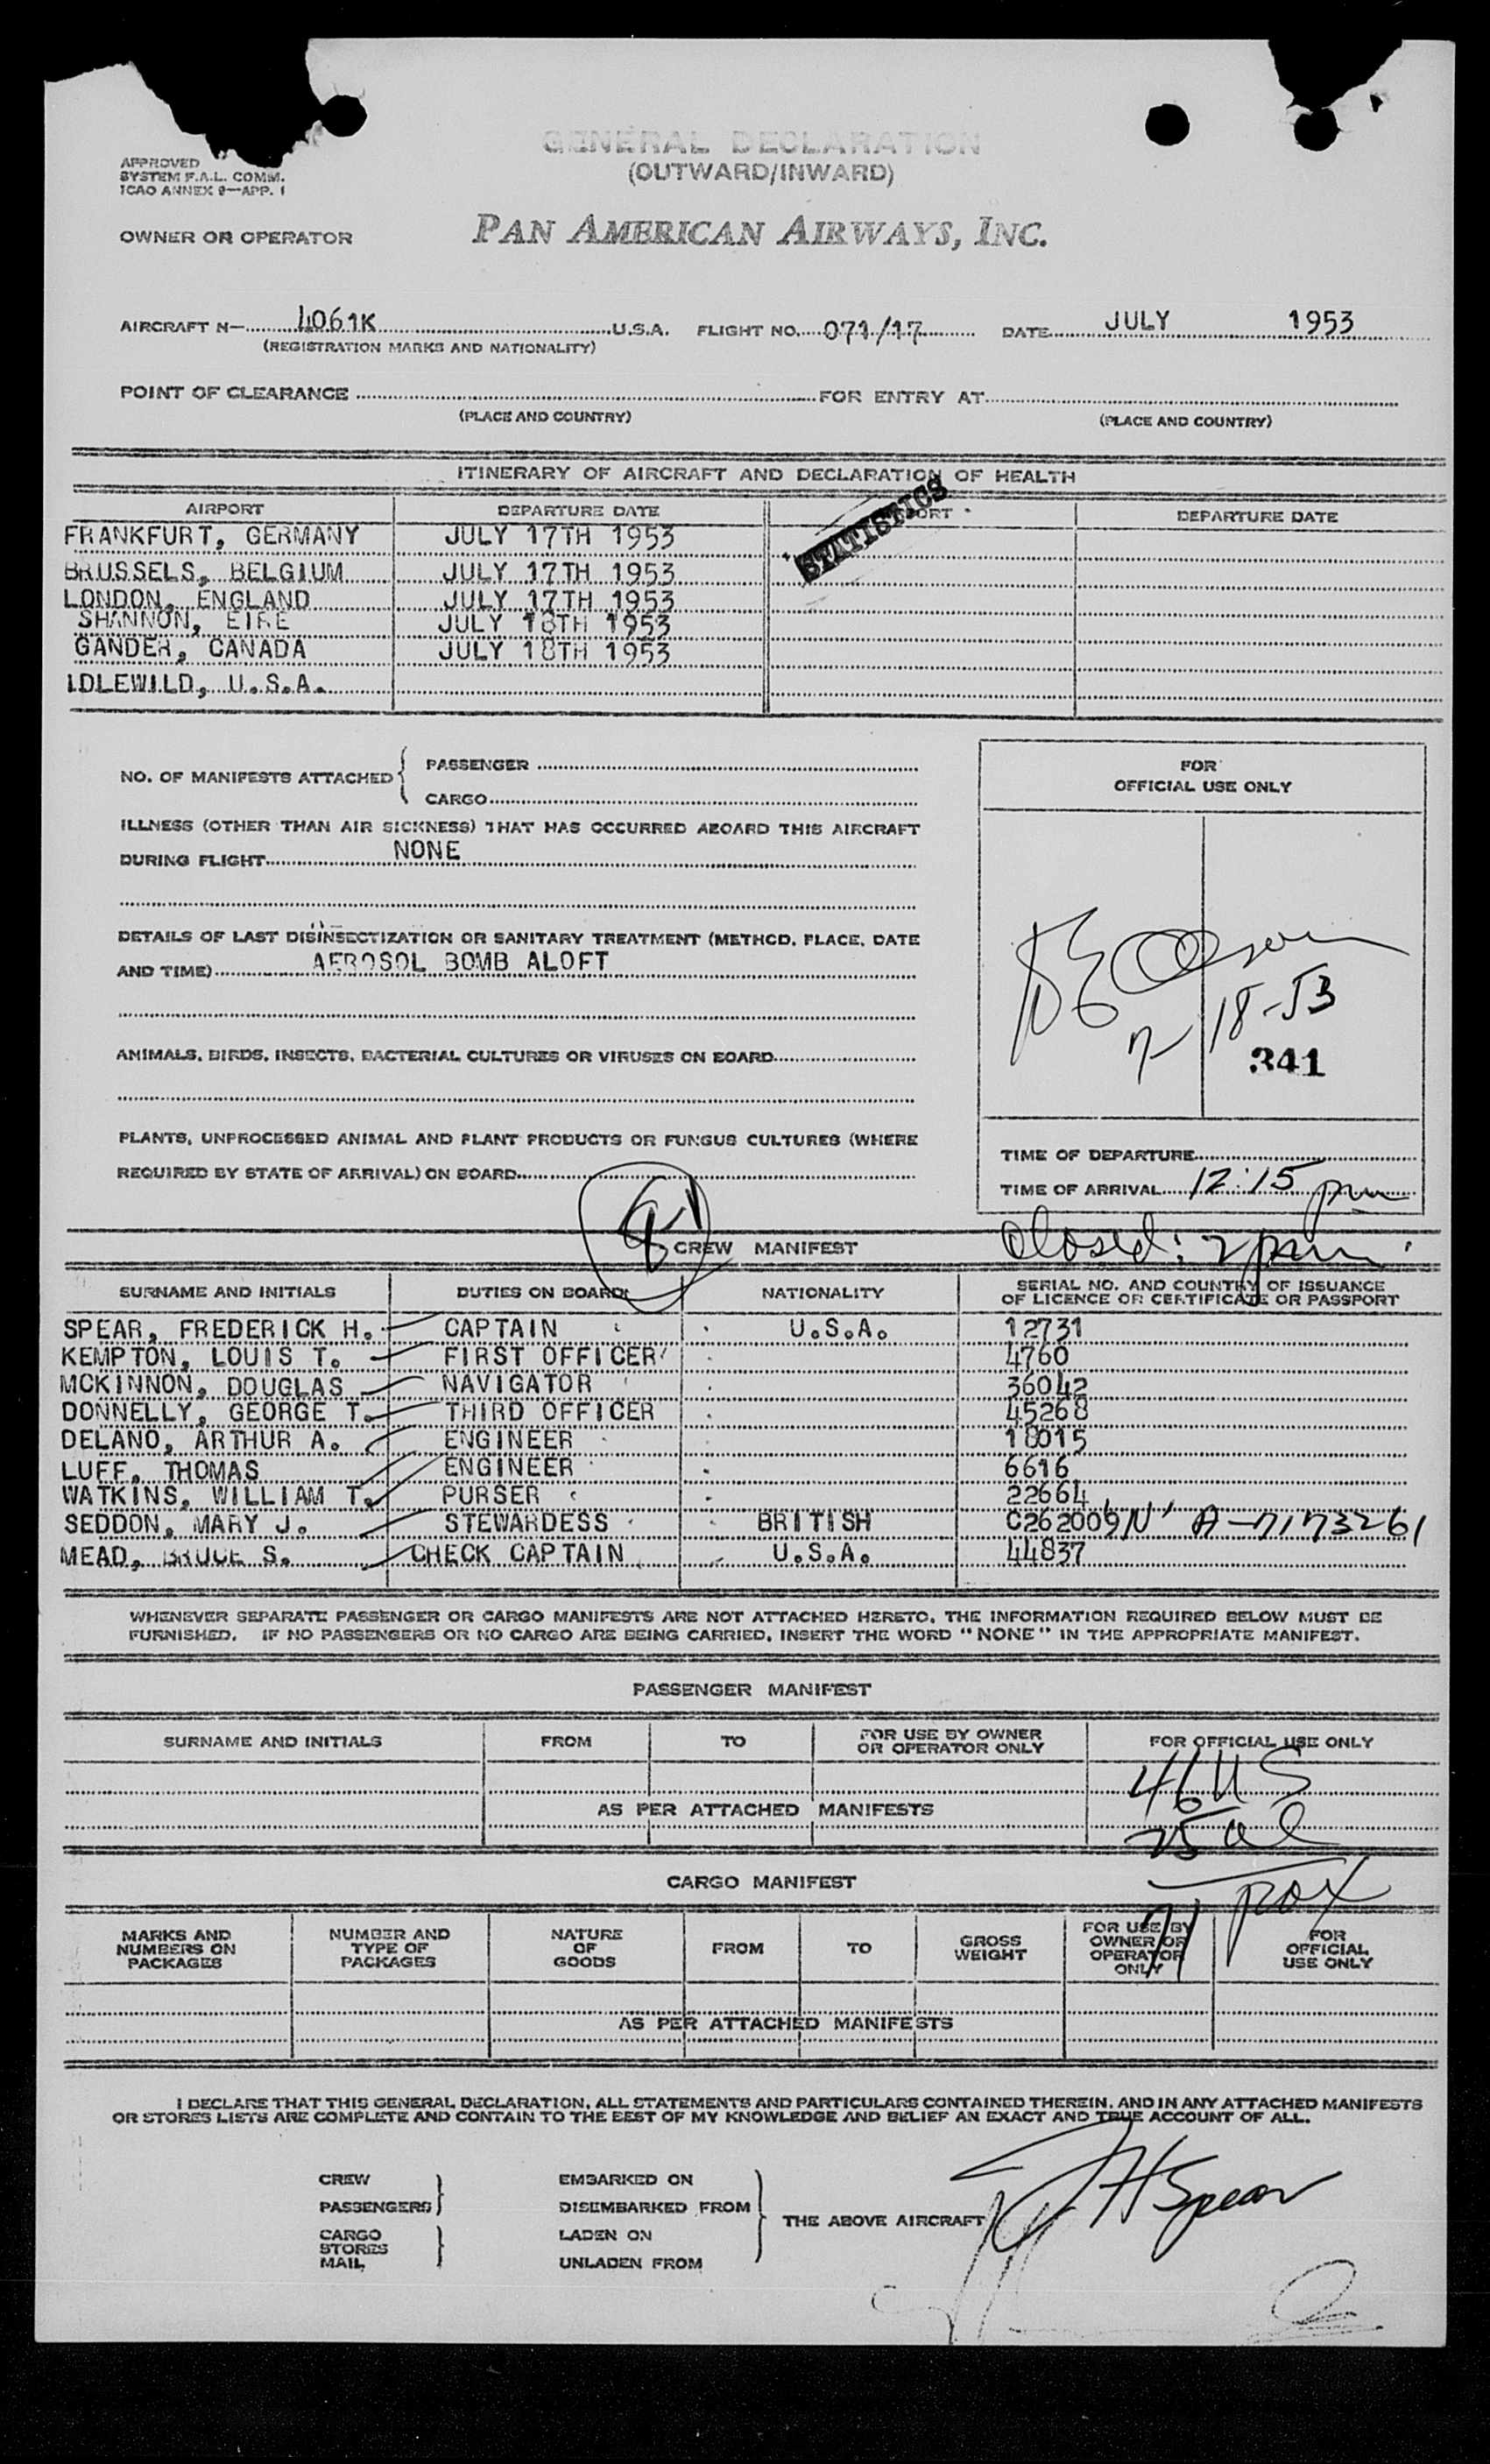 GENERAL DECLARATION
(OUTWARD/INWARD)
APPROVED
SYSTEM F.A.L. COMM.
ICAO ANNEX 9—APP. 1
OWNER OR OPERATOR PAN AMERICAN AIRWAYS, INC.
AIRCRAFT N— 4061K U.S.A. FLIGHT NO. 071/17 DATE JULY 1953
(REGISTRATION MARKS AND NATIONALITY)
POINT OF CLEARANCE FOR ENTRY AT
(PLACE AND COUNTRY) (PLACE AND COUNTRY)
ITINERARY OF AIRCRAFT AND DECLARATION OF HEALTH
STATISTICS
AIRPORT DEPARTURE DATE PORT DEPARTURE DATE
FRANKFURT, GERMANY JULY 17TH 1953
BRUSSELS, BELGIUM JULY 17TH 1953
LONDON, ENGLAND JULY 17TH 1953
SHANNON, EIRE JULY 18TH 1953
GANDER, CANADA JULY 18TH 1953
IDLEWILD, U.S.A.
NO. OF MANIFESTS ATTACHED PASSENGER
CARGO
ILLNESS (OTHER THAN AIR SICKNESS) THAT HAS OCCURRED ABOARD THIS AIRCRAFT
DURING FLIGHT NONE
DETAILS OF LAST DISINSECTIZATION OR SANITARY TREATMENT (METHOD, PLACE, DATE
AND TIME) AEROSOL BOMB ALOFT
ANIMALS, BIRDS, INSECTS, BACTERIAL CULTURES OR VIRUSES ON BOARD
PLANTS, UNPROCESSED ANIMAL AND PLANT PRODUCTS OR FUNGUS CULTURES (WHERE
REQUIRED BY STATE OF ARRIVAL) ON BOARD
FOR
OFFICIAL USE ONLY
7 18-53
341
TIME OF DEPARTURE
TIME OF ARRIVAL 12:15 pm
Closed: 2 pm
CREW MANIFEST
SURNAME AND INITIALS DUTIES ON BOARD NATIONALITY SERIAL NO. AND COUNTRY OF ISSUANCE
OF LICENCE OR CERTIFICATE OR PASSPORT
SPEAR, FREDERICK H. CAPTAIN U.S.A. 12731
KEMPTON, LOUIS T. FIRST OFFICER 4760
MCKINNON, DOUGLAS NAVIGATOR 36042
DONNELLY, GEORGE T. THIRD OFFICER 45268
DELANO, ARTHUR A. ENGINEER 18015
LUFF, THOMAS ENGINEER 6616
WATKINS, WILLIAM T. PURSER 22664
SEDDON, MARY J. STEWARDESS BRITISH C262009 A-7173261
MEAD, BRUCE S. CHECK CAPTAIN U.S.A. 44837
WHENEVER SEPARATE PASSENGER OR CARGO MANIFESTS ARE NOT ATTACHED HERETO, THE INFORMATION REQUIRED BELOW MUST BE
FURNISHED. IF NO PASSENGERS OR NO CARGO ARE BEING CARRIED, INSERT THE WORD "NONE" IN THE APPROPRIATE MANIFEST.
PASSENGER MANIFEST
SURNAME AND INITIALS FROM TO FOR USE BY OWNER
OR OPERATOR ONLY FOR OFFICIAL USE ONLY
46 US
AS PER ATTACHED MANIFESTS
25 al
CARGO MANIFEST
71 pax
MARKS AND
NUMBERS ON
PACKAGES
NUMBER AND
TYPE OF
PACKAGES
NATURE
OF
GOODS
FROM TO
GROSS
WEIGHT
FOR USE BY
OWNER OR
OPERATOR
ONLY
FOR
OFFICIAL
USE ONLY
AS PER ATTACHED MANIFESTS
I DECLARE THAT THIS GENERAL DECLARATION, ALL STATEMENTS AND PARTICULARS CONTAINED THEREIN, AND IN ANY ATTACHED MANIFESTS
OR STORES LISTS ARE COMPLETE AND CONTAIN TO THE BEST OF MY KNOWLEDGE AND BELIEF AN EXACT AND TRUE ACCOUNT OF ALL.
CREW EMBARKED ON
PASSENGERS DISEMBARKED FROM
THE ABOVE AIRCRAFT FH Spear
CARGO LADEN ON
STORES
MAIL UNLADEN FROM